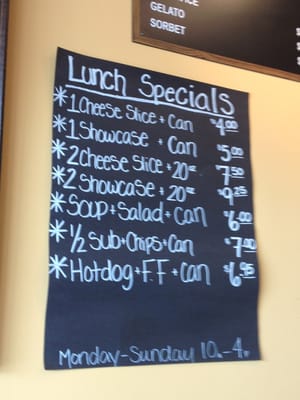 GELATO
SORBET
Lunch Specials
* 1 Cheese Slice + Can $4.00
* 1 Showcase + Can $5.00
* 2 cheese Slice + 20oz $7.50
* 2 Showcase + 20oz $9.25
* SOUP + Salad + Can $6.00
* 1/2 Sub + Chips + Can $7.00
* Hotdog + FF + Can $6.95
Monday - Sunday 10am - 4pm